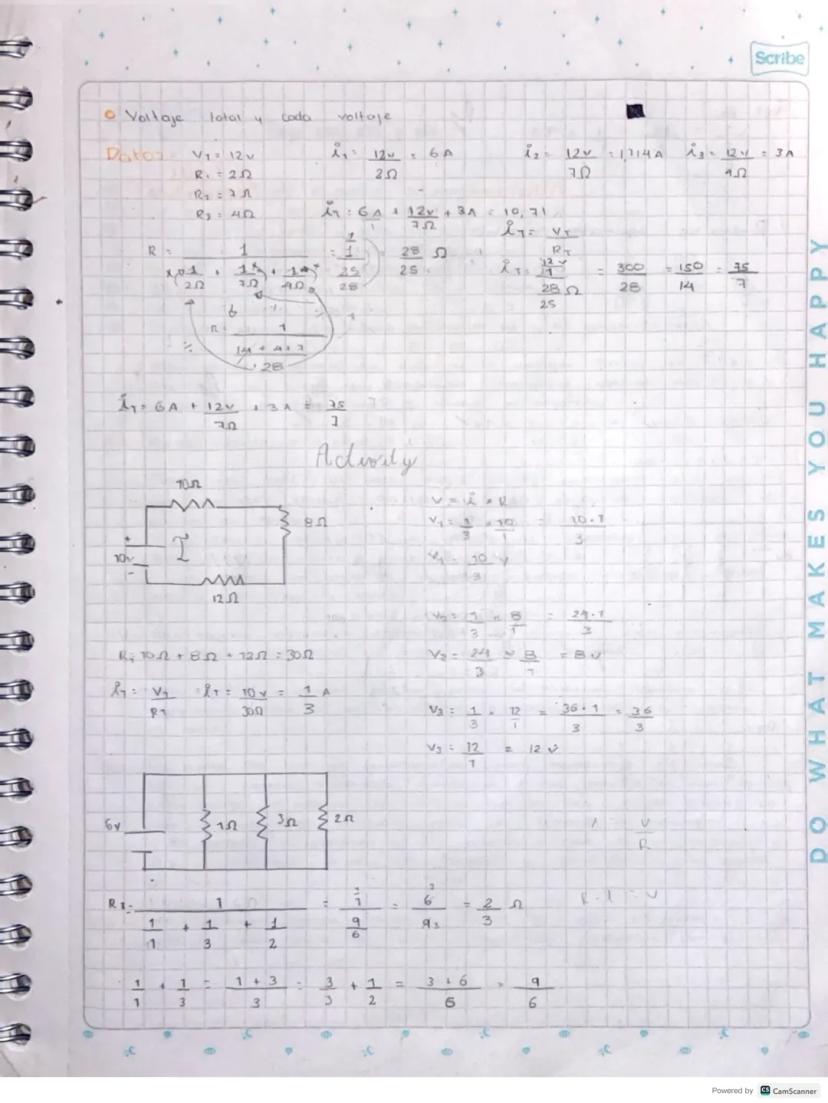 Scribe
Voltaje total y cada voltaje
Datos V₁ = 12v
R₁ = 2Ω
R₂ = 7Ω
R₃ = 4Ω
i₁ = 12v/2Ω = 6A
i₂ = 12v/7Ω = 1,714A
i₃ = 12v/4Ω = 3A
iT = 6A + 12v/7Ω + 3A = 10,71
R = 1/(1/2Ω + 1/7Ω + 1/4Ω) = 1/(25/28) = 28/25 Ω
iT = VT/RT
300/28 = 150/14 = 75/7
1/((14 + 4 + 7)/28)
iT = 6A + 12v/7Ω + 3A = 75/7
Activity
10Ω
8Ω
10v
I
12Ω
V = i × R
V₁ = 1/3 × 10/1 = 10·1/3
V₁ = 10/3 v
V₂ = 1/3 × 8/1 = 24·1/3
V₂ = 24/3 × 8/1 = 8v
V₃ = 1/3 · 12/1 = 36·1/3 = 36/3
V₃ = 12/1 = 12v
RT 10Ω + 8Ω + 12Ω = 30Ω
iT = VT/RT iT = 10v/30Ω = 1/3 A
6v
1Ω
3Ω
2Ω
V/R
RT = 1/(1/1 + 1/3 + 1/2) = 1/(9/6) = 6/9 = 2/3 Ω
1/1 + 1/3 = 1+3/3 = 3/3 + 1/2 = 3+6/6 = 9/6
DO WHAT MAKES YOU HAPPY
Powered by CS CamScanner